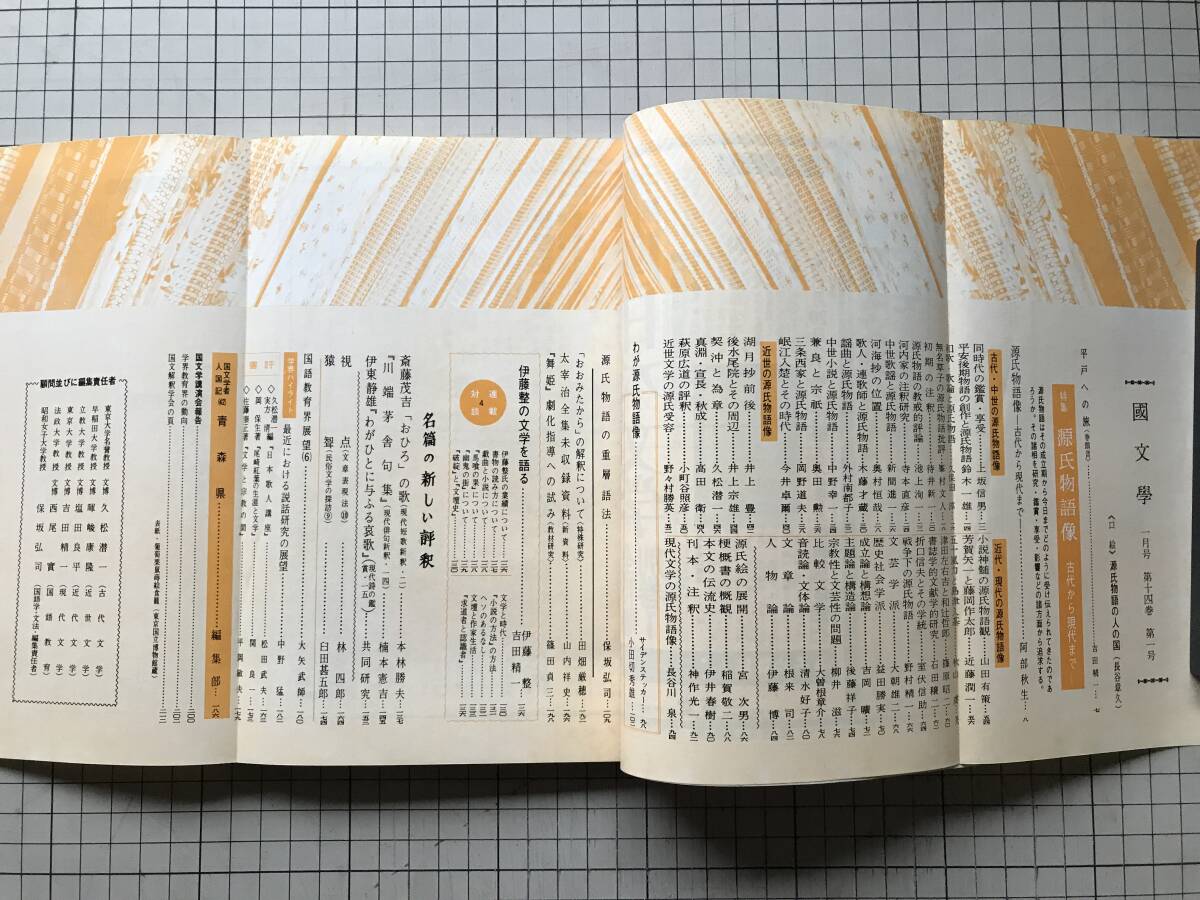 國文學 一月号 第十四巻 第一号
〈口絵〉源氏物語の人の国（長谷章久）
平戸への旅（巻頭言）……吉田精一…七
特集 源氏物語像 古代から現代まで
源氏物語はその成立期から今日までどのように受け伝えられてきたのであ
ろうか。その諸相を研究・鑑賞・享受・影響などの諸方面から追求する。
源氏物語像―古代から現代まで―……阿部秋生…八
古代・中世の源氏物語像
同時代の鑑賞・享受……上坂信男
平安後期物語の創作と源氏物語…鈴木一雄
無名草子の源氏物語批評
初期の注釈…待井新一
源氏物語の教戒的評論…池上洵一
河内家の注釈研究…寺本直彦
中世歌謡と源氏物語…新間進一
河海抄の位置……奥村恒哉
歌人・連歌師と源氏物語…木藤才蔵
謡曲と源氏物語……外村南都子
中世小説と源氏物語…中野幸一
兼良と宗祇……奥田勲
三条西家と源氏物語…岡野道夫
岷江入楚とその時代…今井卓爾
近世の源氏物語像
湖月抄前後……井上豊
後水尾院とその周辺…井上宗雄
契沖と為章……久松潜一
真淵・宣長・秋成……高田衛
萩原広道の評釈……小町谷照彦
近世文学の源氏受容…野々村勝英
近代・現代の源氏物語像
小説神髄の源氏物語観…山田有策
芳賀矢一と藤岡作太郎…近藤潤一
五十嵐力と島津久基
津田左右吉と和辻哲郎…篠原昭二
書誌学的文献学的研究…石田穣二
折口信夫とその学統…室伏信助
戦争下の源氏物語…野村精一
文芸学派……大朝雄二
歴史社会学派……益田勝実
成立論と構想論……吉岡曠
主題論と構造論……後藤祥子
宗教性と文芸性の問題…柳井滋
比較文学……大曽根章介
音読論・文体論……清水好子
文章論……根来司
人物論……伊藤博
源氏絵の展開……宮次男
梗概書の概観……稲賀敬二
本文の伝流史……伊井春樹
刊本・注釈……神作光一
現代文学の源氏物語像…長谷川泉
わが源氏物語像
サイデンステッカー
小田切秀雄
源氏物語の重層語法……保坂弘司
「おおみたから」の解釈について（特殊研究）……田畑勝
太宰治全集未収録資料（新資料）……山内祥史
『舞姫』劇化指導への試み（教材研究）……篠田貞三
連載対談 4
伊藤整の文学を語る
伊藤整
吉田精一
伊藤整氏の業績について
書物の読み方について
戯曲と小説について
『馬喰の果』について
『幽鬼の街』について
『破綻』と『文壇史』
文学と時代
『小説の方法』の方法
ヘソのあるなし
文壇と作家生活
『求道者と認識者』
名篇の新しい評釈
斎藤茂吉「おひろ」の歌（現代短歌新釈・二）……本林勝夫
『川端茅舎句集』（現代俳句新釈・一四）……楠本憲吉
伊東静雄『わがひとに与ふる哀歌』（現代詩の鑑賞・一五）……共同研究
視点（文章表現法⑩）……林四郎
猿聟（民俗文学の探訪⑨）……臼田甚五郎
国語教育界展望(6)……大矢武師
学界ハイライト 最近における説話研究の展望……中野猛
書評
◇久松潜一・実方清編『日本歌人講座』……松田武夫
◇岡保生著『尾崎紅葉の生涯と文学』……関良一
◇佐藤泰正著『文学と宗教の間』……平岡敏夫
国文学者人国記 青森県……編集部
国文学講演会報告
学界教育界の動向
国文解釈学会の頁
表紙・葡萄栗鼠蒔絵食籠（東京国立博物館蔵）
顧問並びに編集責任者
東京大学名誉教授 文博 久松潜一（古代文学）
早稲田大学教授 文博 暉峻康隆（近世文学）
立教大学教授 文博 塩田良平（近代文学）
東京大学教授 文博 吉田精一（現代文学）
法政大学教授 文博 西尾實（国語教育）
昭和女子大学教授 保坂弘司（国語学・文法・編集責任者）